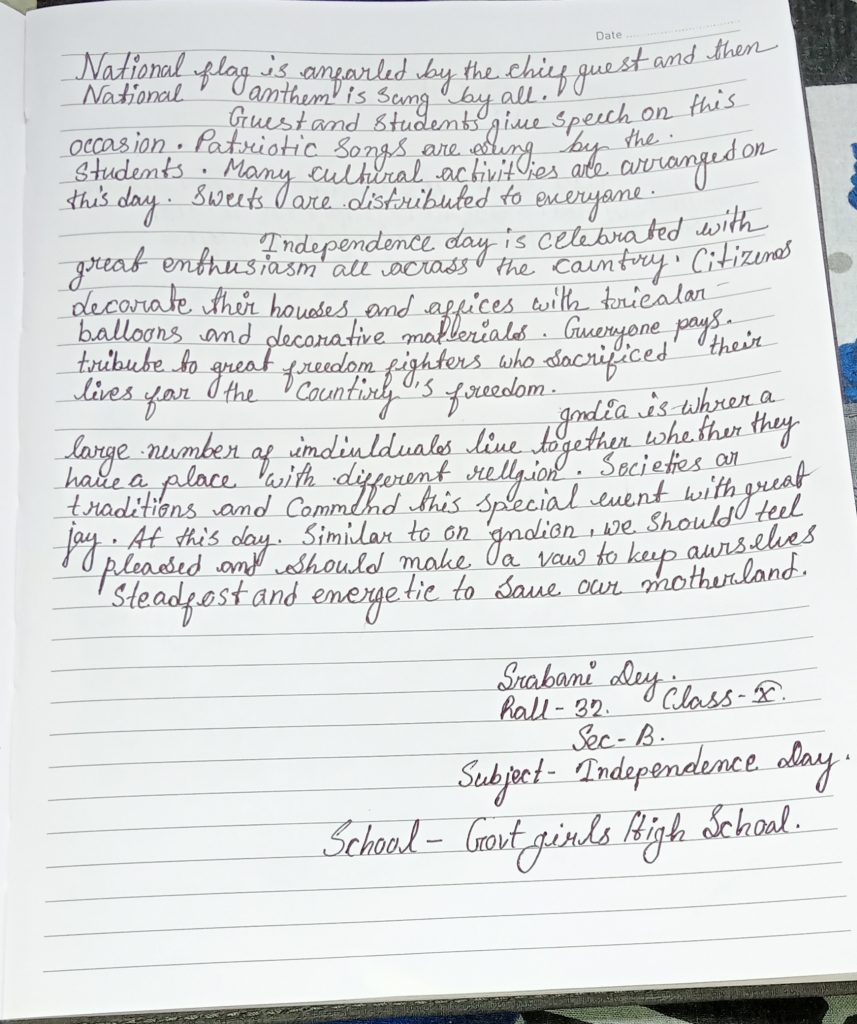 Date
National flag is anfarled by the chief guest and then
National anthem is sung by all.
Guest and students give speech on this
occasion. Patriotic Songs are sung by the.
Students. Many cultural activities are arranged on
this day. Sweets are distributed to everyone.
Independence day is celebrated with
great enthusiasm all across the country. Citizens
decorate their houses and offices with tricolar
balloons and decorative materials. Everyone pays.
tribute to great freedom fighters who sacrificed their
lives for the Country's freedom.
India is where a
large number of individuals live together whether they
have a place with different religion. Societies or
traditions and Commend this special event with great
joy. At this day. Similar to on Indian, we should feel
pleased and should make a vow to keep ourselves
Steadfast and energetic to save our motherland.
Srabani Dey.
Roll - 32. Class - X.
Sec - B.
Subject - Independence Day.
School - Govt girls High School.